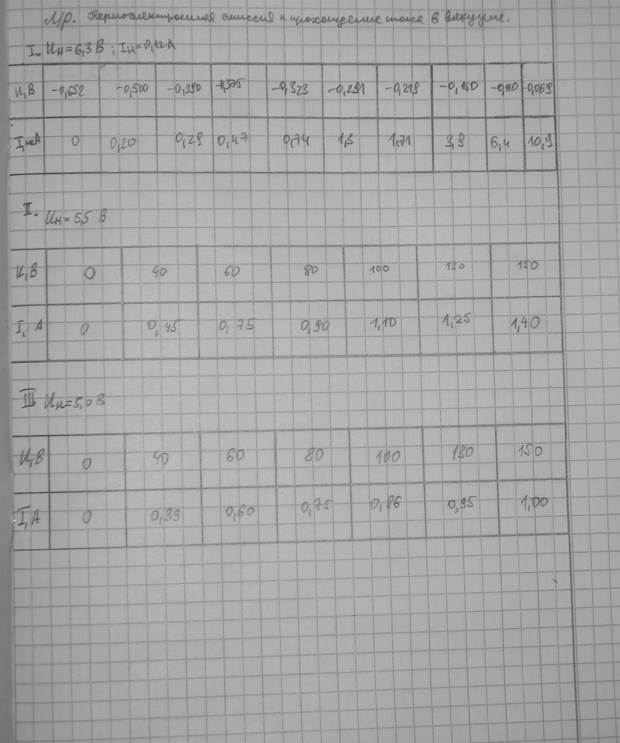 Л/р. Термоэлектронная эмиссия и прохождение тока в вакууме.
I. Uн=6,3 В ; Iн=0,12 А
U,В -0,652 -0,500 -0,390 -0,375 -0,323 -0,291 -0,219 -0,140 -0,110 -0,069
I,мкА 0 0,20 0,29 0,47 0,74 1,3 1,71 3,9 6,4 10,9
II. Uн=5,5 В
U,В 0 40 60 80 100 130 150
I, А 0 0,45 0,75 0,90 1,10 1,25 1,40
III Uн=5,0 В
U,В 0 40 60 80 100 130 150
I,А 0 0,39 0,60 0,75 0,86 0,95 1,00